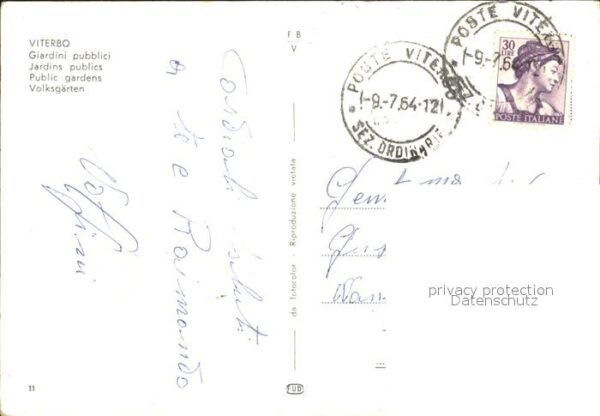 VITERBO
Giardini pubblici
Jardins publics
Public gardens
Volksgärten
F B
V
POSTE VITERBO
1-9.-7.64-12
SEZ. ORDINARIE
POSTE VITERBO
-9.-7.64
30
LIRE
POSTE ITALIANE
Cordiali saluti
a te e Raimondo
da fotocolor - Riproduzione vietata
privacy protection
Datenschutz
11